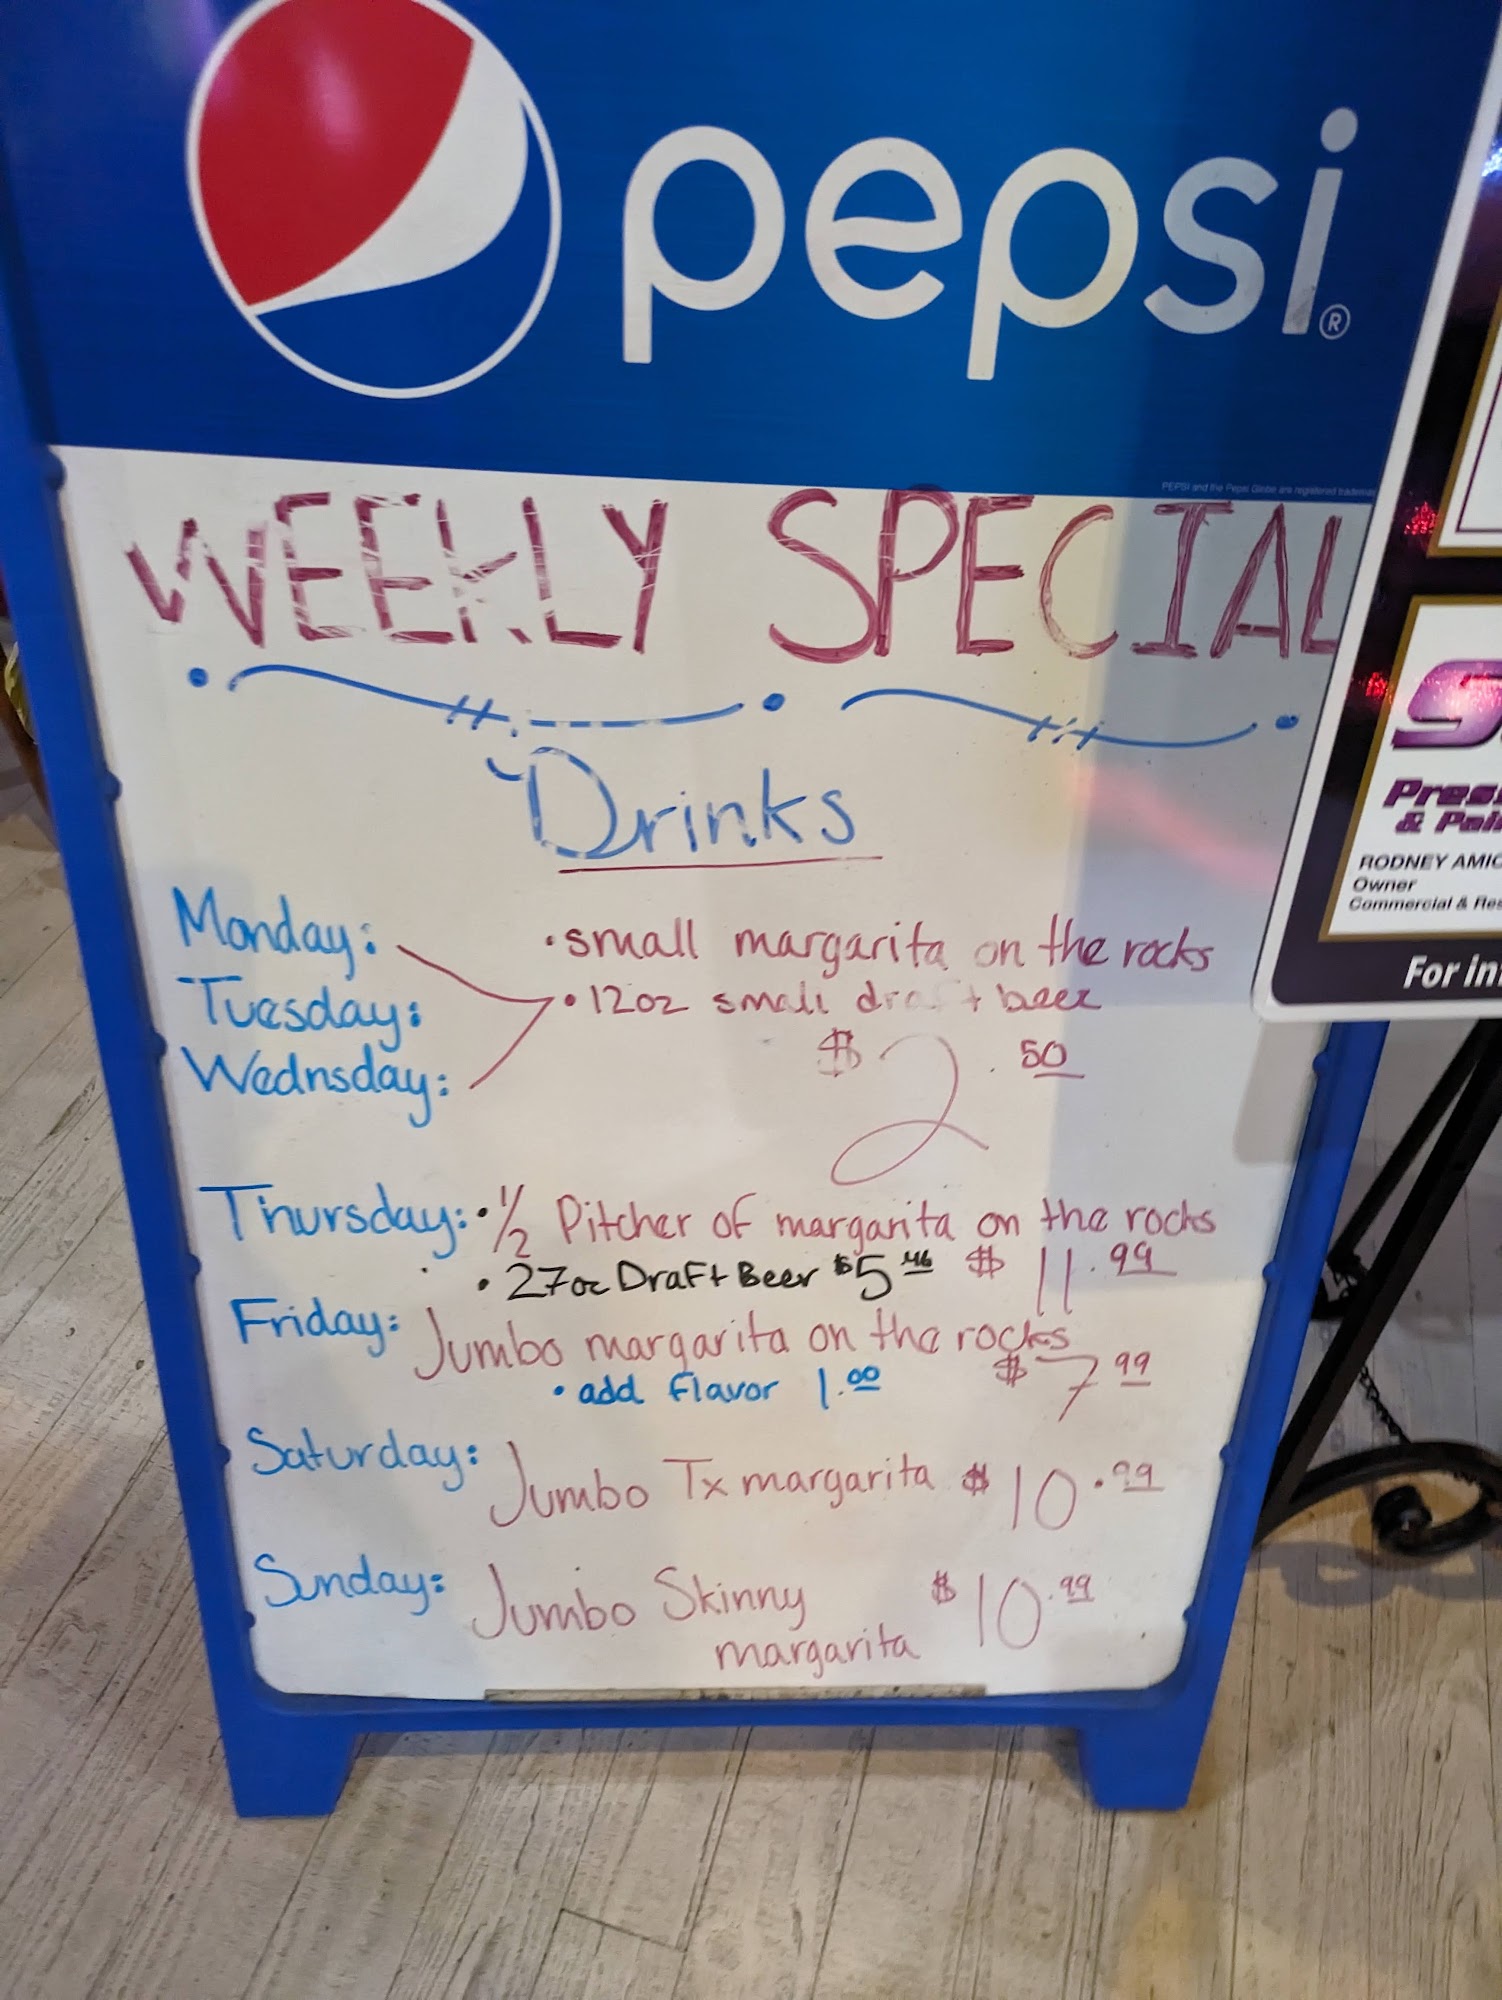 pepsi®
PEPSI and the Pepsi Globe are registered
WEEKLY SPECIAL
Drinks
Monday: • small margarita on the rocks
Tuesday: • 12oz small draft beer
Wednsday: $2.50
Thursday: • 1/2 Pitcher of margarita on the rocks
• 27oz Draft Beer $5.46 $11.99
Friday: Jumbo margarita on the rocks
• add flavor 1.00 $7.99
Saturday: Jumbo Tx margarita $10.99
Sunday: Jumbo Skinny $10.99
margarita
Pres
& Pai
RODNEY AMIC
Owner
Commercial & Res
For in